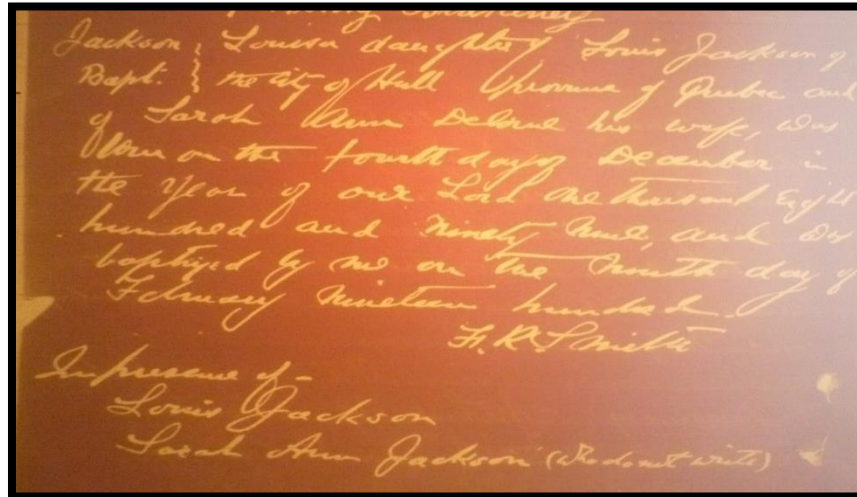 Courtney
Jackson Louisa daughter of Louis Jackson of
Bapt. the City of Hull Province of Quebec and
of Sarah Ann his wife, was
Born on the fourth day of December in
the Year of our Lord One thousand Eight
hundred and Ninety Nine, and was
baptized by me on the Ninth day of
February Nineteen hundred.
F. R. Smith
In presence of -
Louis Jackson
Sarah Ann Jackson (who do not write)